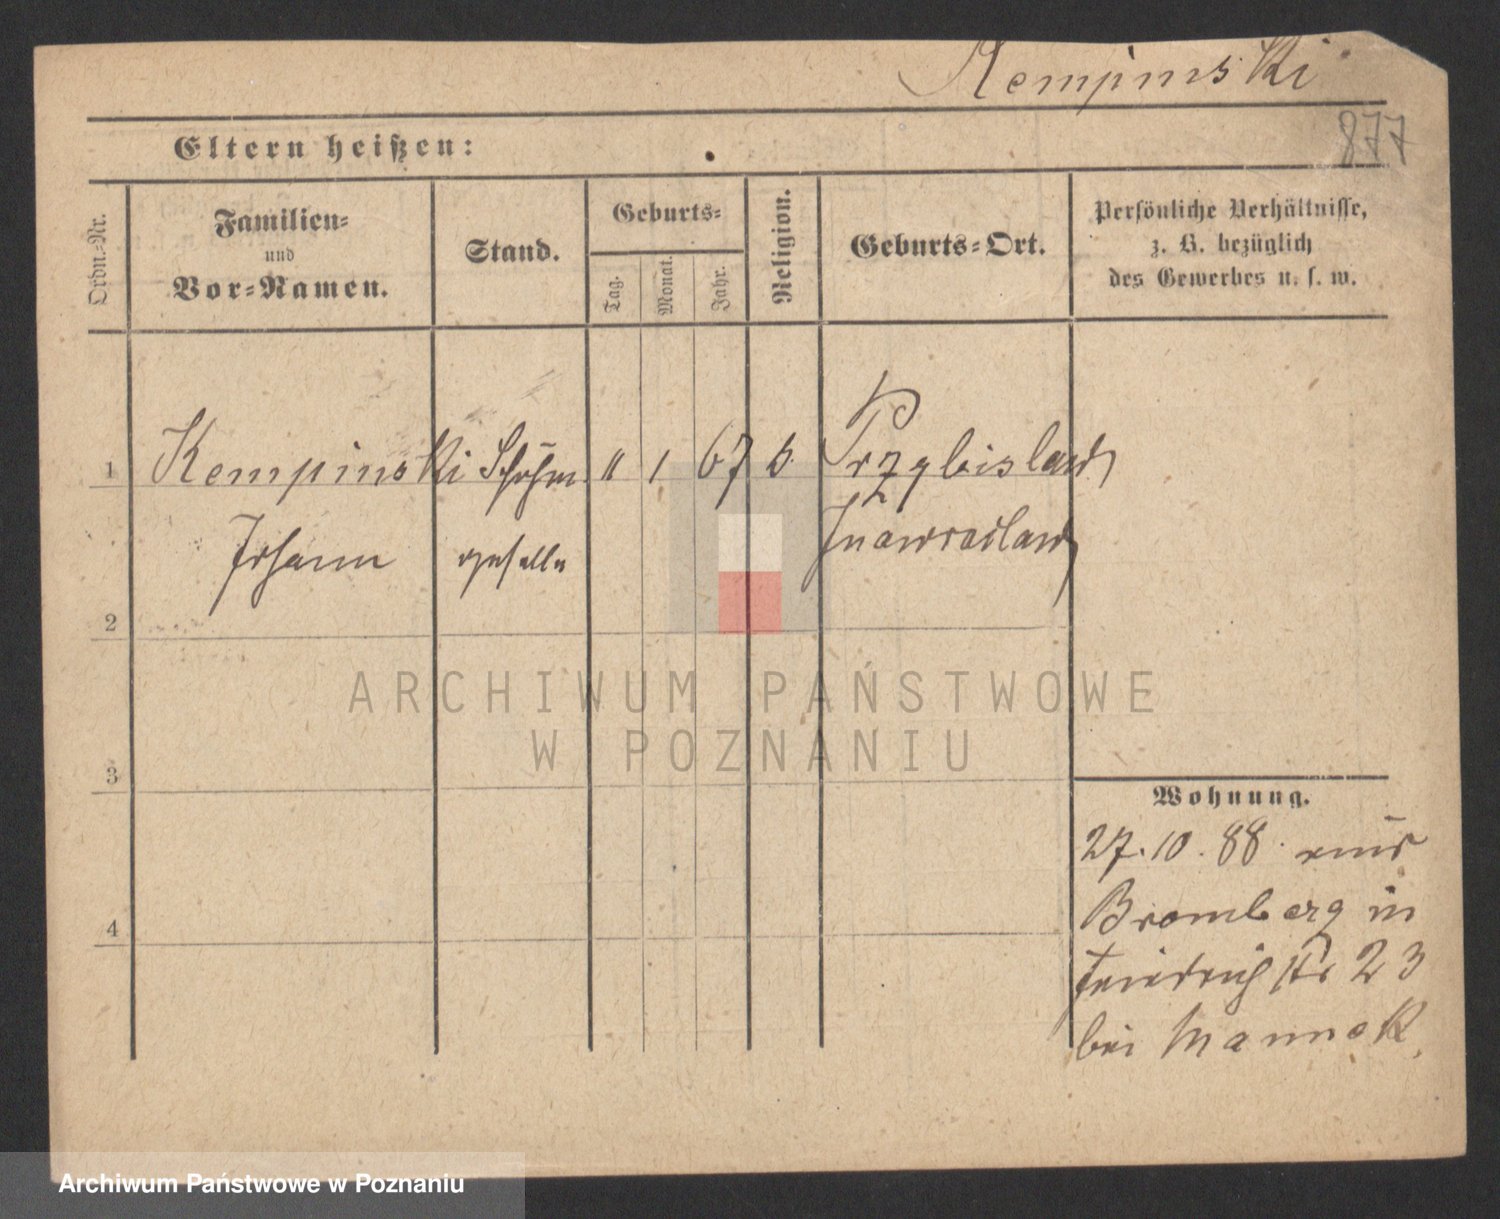 Kempinski
877
Eltern heißen:
Ordn.-Nr.
Familien-
und
Vor-Namen.
Stand.
Geburts-
Tag.
Monat.
Jahr.
Religion.
Geburts-Ort.
Persönliche Verhältnisse,
z. B. bezüglich
des Gewerbes u. s. w.
1 Kempinski 11 1 67 Przybislaw
Johann geselle Inowraclaw
2
3
4
Wohnung.
27.10.88. aus
Bromberg in
Friedrichstr 23
bei Mannek
ARCHIWUM PAŃSTWOWE
W POZNANIU
Archiwum Państwowe w Poznaniu